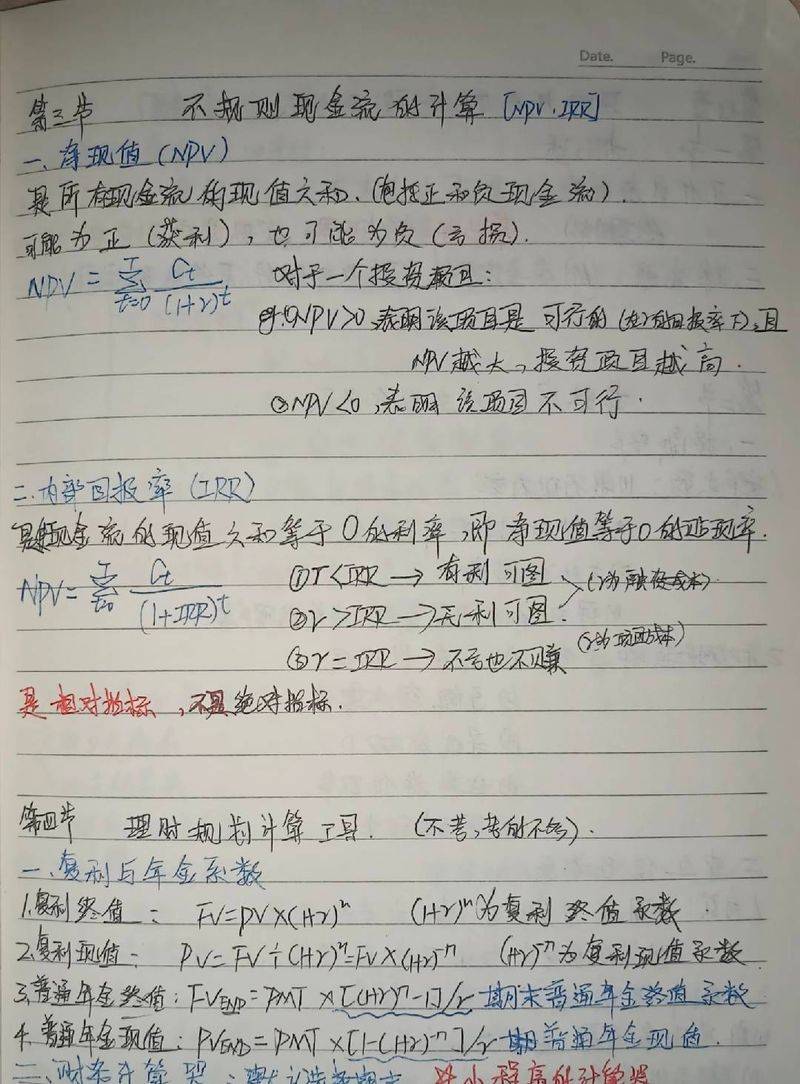 Date. Page.
第三节 不规则现金流的计算 [NPV、IRR]
一、净现值 (NPV)
是所有现金流的现值之和.(包括正和负现金流).
可能为正(获利),也可能为负(亏损).
NPV = T∑t=0 Ct/(1+r)^t 对于一个投资项目:
①NPV>0,表明该项目是可行的(在r的回报率下),且
NPV越大,投资项目越高.
②NPV<0,表明该项目不可行.
二.内部回报率 (IRR)
是现金流的现值之和等于0的利率,即净现值等于0的贴现率.
NPV = T∑t=0 Ct/(1+IRR)^t ①r<IRR → 有利可图 (r为融资成本)
②r>IRR → 无利可图.
③r=IRR → 不亏也不赚 (r为项目成本)
是相对指标,不是绝对指标.
第四节 理财规划计算工具. (不考,考的不多).
一.复利与年金系数
1.复利终值: FV=PV×(1+r)^n (1+r)^n为复利终值系数.
2.复利现值: PV=FV÷(1+r)^n=FV×(1+r)^-n (1+r)^-n为复利现值系数.
3.普通年金终值: FVEND=PMT×[(1+r)^n-1]/r 期末普通年金终值系数
4.普通年金现值: PVEND=PMT×[1-(1+r)^-n]/r 期普通年金现值.
二、财务计算器:默认选择期末